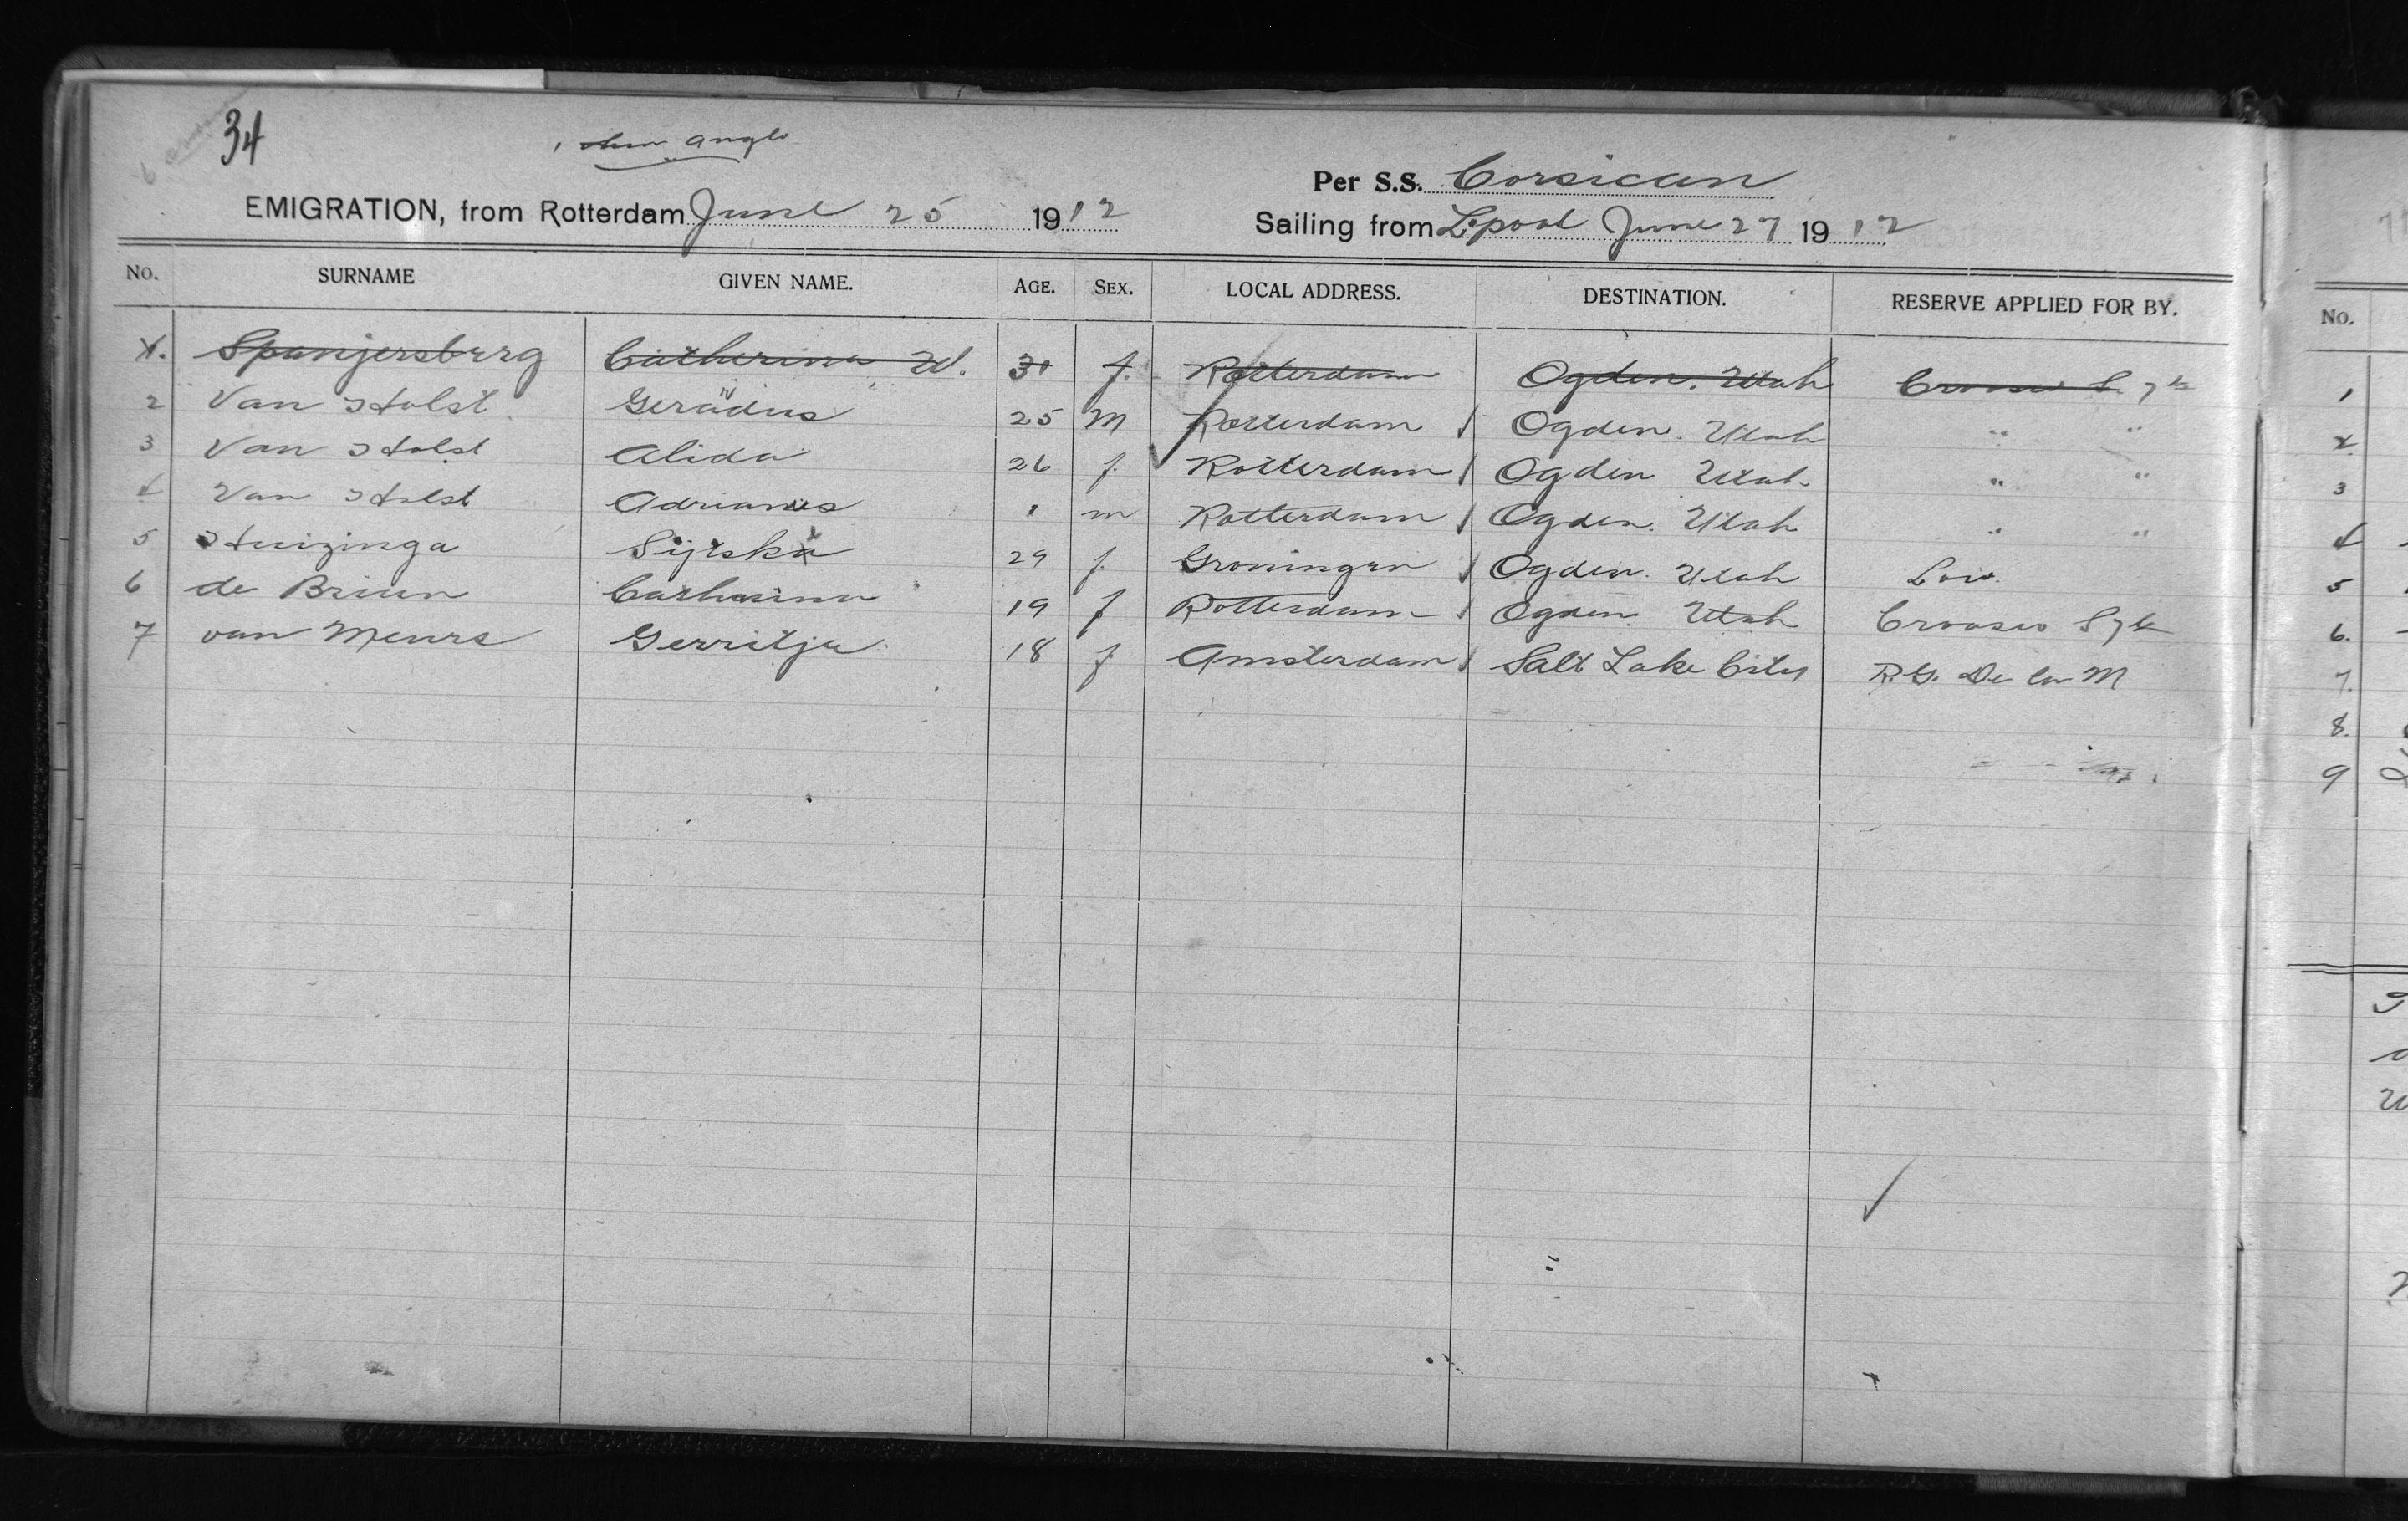 34
anglo
Per S.S. Corsican
EMIGRATION, from Rotterdam June 25 1912
Sailing from L'pool June 27 1912
No. SURNAME GIVEN NAME. AGE. SEX. LOCAL ADDRESS. DESTINATION. RESERVE APPLIED FOR BY. No.
X. Spanjersberg Catherina W. 31 f. Rotterdam Ogden. Utah
2 Van Holst Geradus 25 M Rotterdam Ogden. Utah " " 1
3 Van Holst Alida 26 f. Rotterdam Ogden Utah " " 2
4 Van Holst Adrianus 1 m Rotterdam Ogden. Utah " " 3
5 Huizinga Sijtska 29 f. Groningen Ogden. Utah 4
6 de Bruin Catharina 19 f Rotterdam Ogden. Utah 5
7 van Meurs Gerritja 18 f Amsterdam Salt Lake City R.G. De M 6.
7.
8.
9